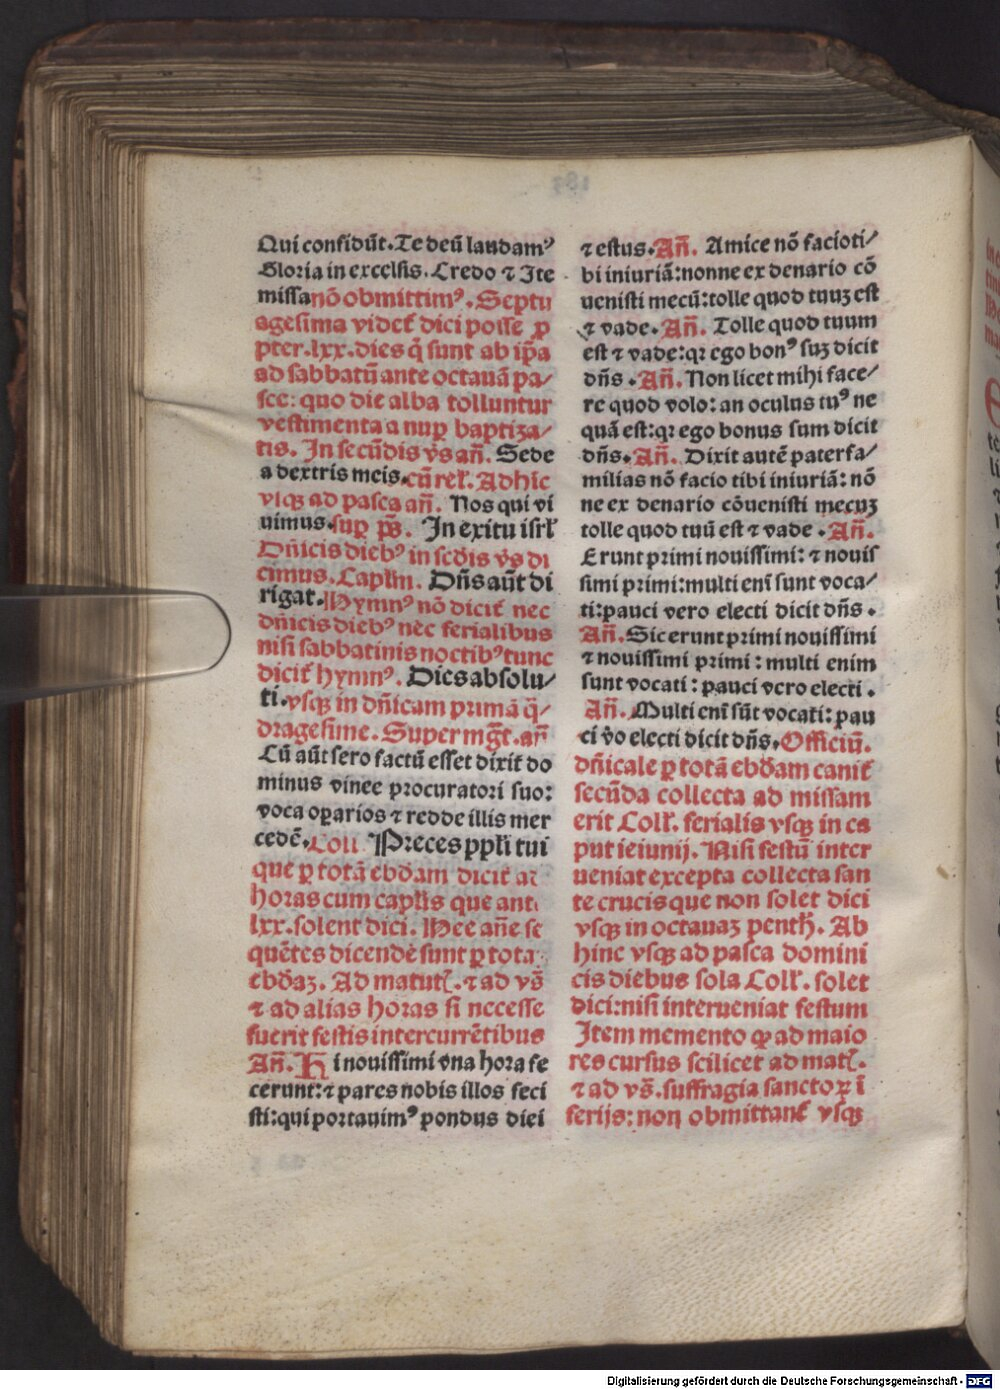 Qui confidũt. Te deũ laudamꝰ
Gloria in excelsis. Credo ⁊ Ite
missa nõ obmittimꝰ. Septu
agesima videt᷑ dici posse ꝓ
pter .lxx. dies q̃ sunt ab ip̃a
ad sabbatũ ante octauã pa/
sce: quo die alba tolluntur
vestimenta a nuꝑ baptiza/
tis. In secũdis vs̃ añ. Sede
a dextris meis. cũ rel̃. Ad hic
vsqꝫ ad pasca añ. Nos qui vi
uimus. suꝑ ps̃. In exitu isrl̃
Dñicis diebꝰ in scd̃is vs̃ di
cimus. Capl̃m. Dñs aũt di
rigat. Hymnꝰ nõ dicit᷑ nec
dñicis diebꝰ nec ferialibus
nisi sabbatinis noctibꝰ tunc
dicit᷑ hymnꝰ. Dies absolu/
ti. vsqꝫ in dñicam primã q̃/
dragesime. Super mg̃t. añ
Cũ aũt sero factũ esset dixit do
minus vinee procuratori suo:
voca oꝑarios ⁊ redde illis mer
cedẽ. Coll̃ Preces ppl̃i tui
que ꝑ totã ebd̃am dicit᷑ ad
horas cum capl̃is que ante
lxx. solent dici. Hee añe se
quẽtes dicende sunt ꝑ totã
ebd̃aꝫ. Ad matut᷑. ⁊ ad vs̃
⁊ ad alias horas si necesse
fuerit festis intercurrẽtibus
Añ. Hi nouissimi vna hora fe
cerunt: ⁊ pares nobis illos feci
sti: qui portauimꝰ pondus diei
⁊ estus. Añ. Amice nõ facio ti/
bi iniuriã: nonne ex denario cõ
uenisti mecũ: tolle quod tuuꝫ est
⁊ vade. Añ. Tolle quod tuum
est ⁊ vade: qꝛ ego bonꝰ suꝫ dicit
dñs. Añ. Non licet mihi face/
re quod volo: an oculus tuꝰ ne
quã est: qꝛ ego bonus sum dicit
dñs. Añ. Dixit autẽ paterfa/
milias nõ facio tibi iniuriã: nõ
ne ex denario cõuenisti mecuꝫ
tolle quod tuũ est ⁊ vade. Añ.
Erunt primi nouissimi: ⁊ nouis
simi primi: multi eni᷑ sunt voca/
ti: pauci vero electi dicit dñs.
Añ. Sic erunt primi nouissimi
⁊ nouissimi primi: multi enim
sunt vocati: pauci vero electi.
Añ. Multi eni᷑ sũt vocati: pau
ci v̾o electi dicit dñs. Officiũ.
dñicale ꝑ totã ebd̃am canit᷑
secũda collecta ad missam
erit Coll̃. ferialis vsqꝫ in ca
put ieiunij. Nisi festũ inter
ueniat excepta collecta san
te crucis que non solet dici
vsqꝫ in octauaꝫ penth̃. Ab
hinc vsqꝫ ad pasca domini
cis diebus sola Coll̃. solet
dici: nisi interueniat festum
Item memento ꝙ ad maio
res cursus scilicet ad mat᷑.
⁊ ad vs̃. suffragia sanctoꝝ ĩ
ferijs: non obmittant᷑ vsqꝫ
Digitalisierung gefördert durch die Deutsche Forschungsgemeinschaft - DFG